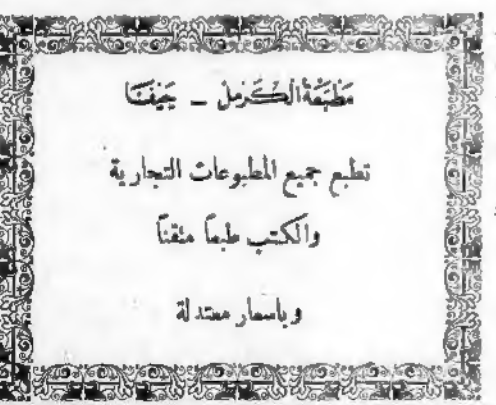 مَطبَعَةُ الكَرمِل _ حَيفَا
تطبع جميع المطبوعات التجارية
والكتب طبعاً متقناً
وباسعار معتدلة